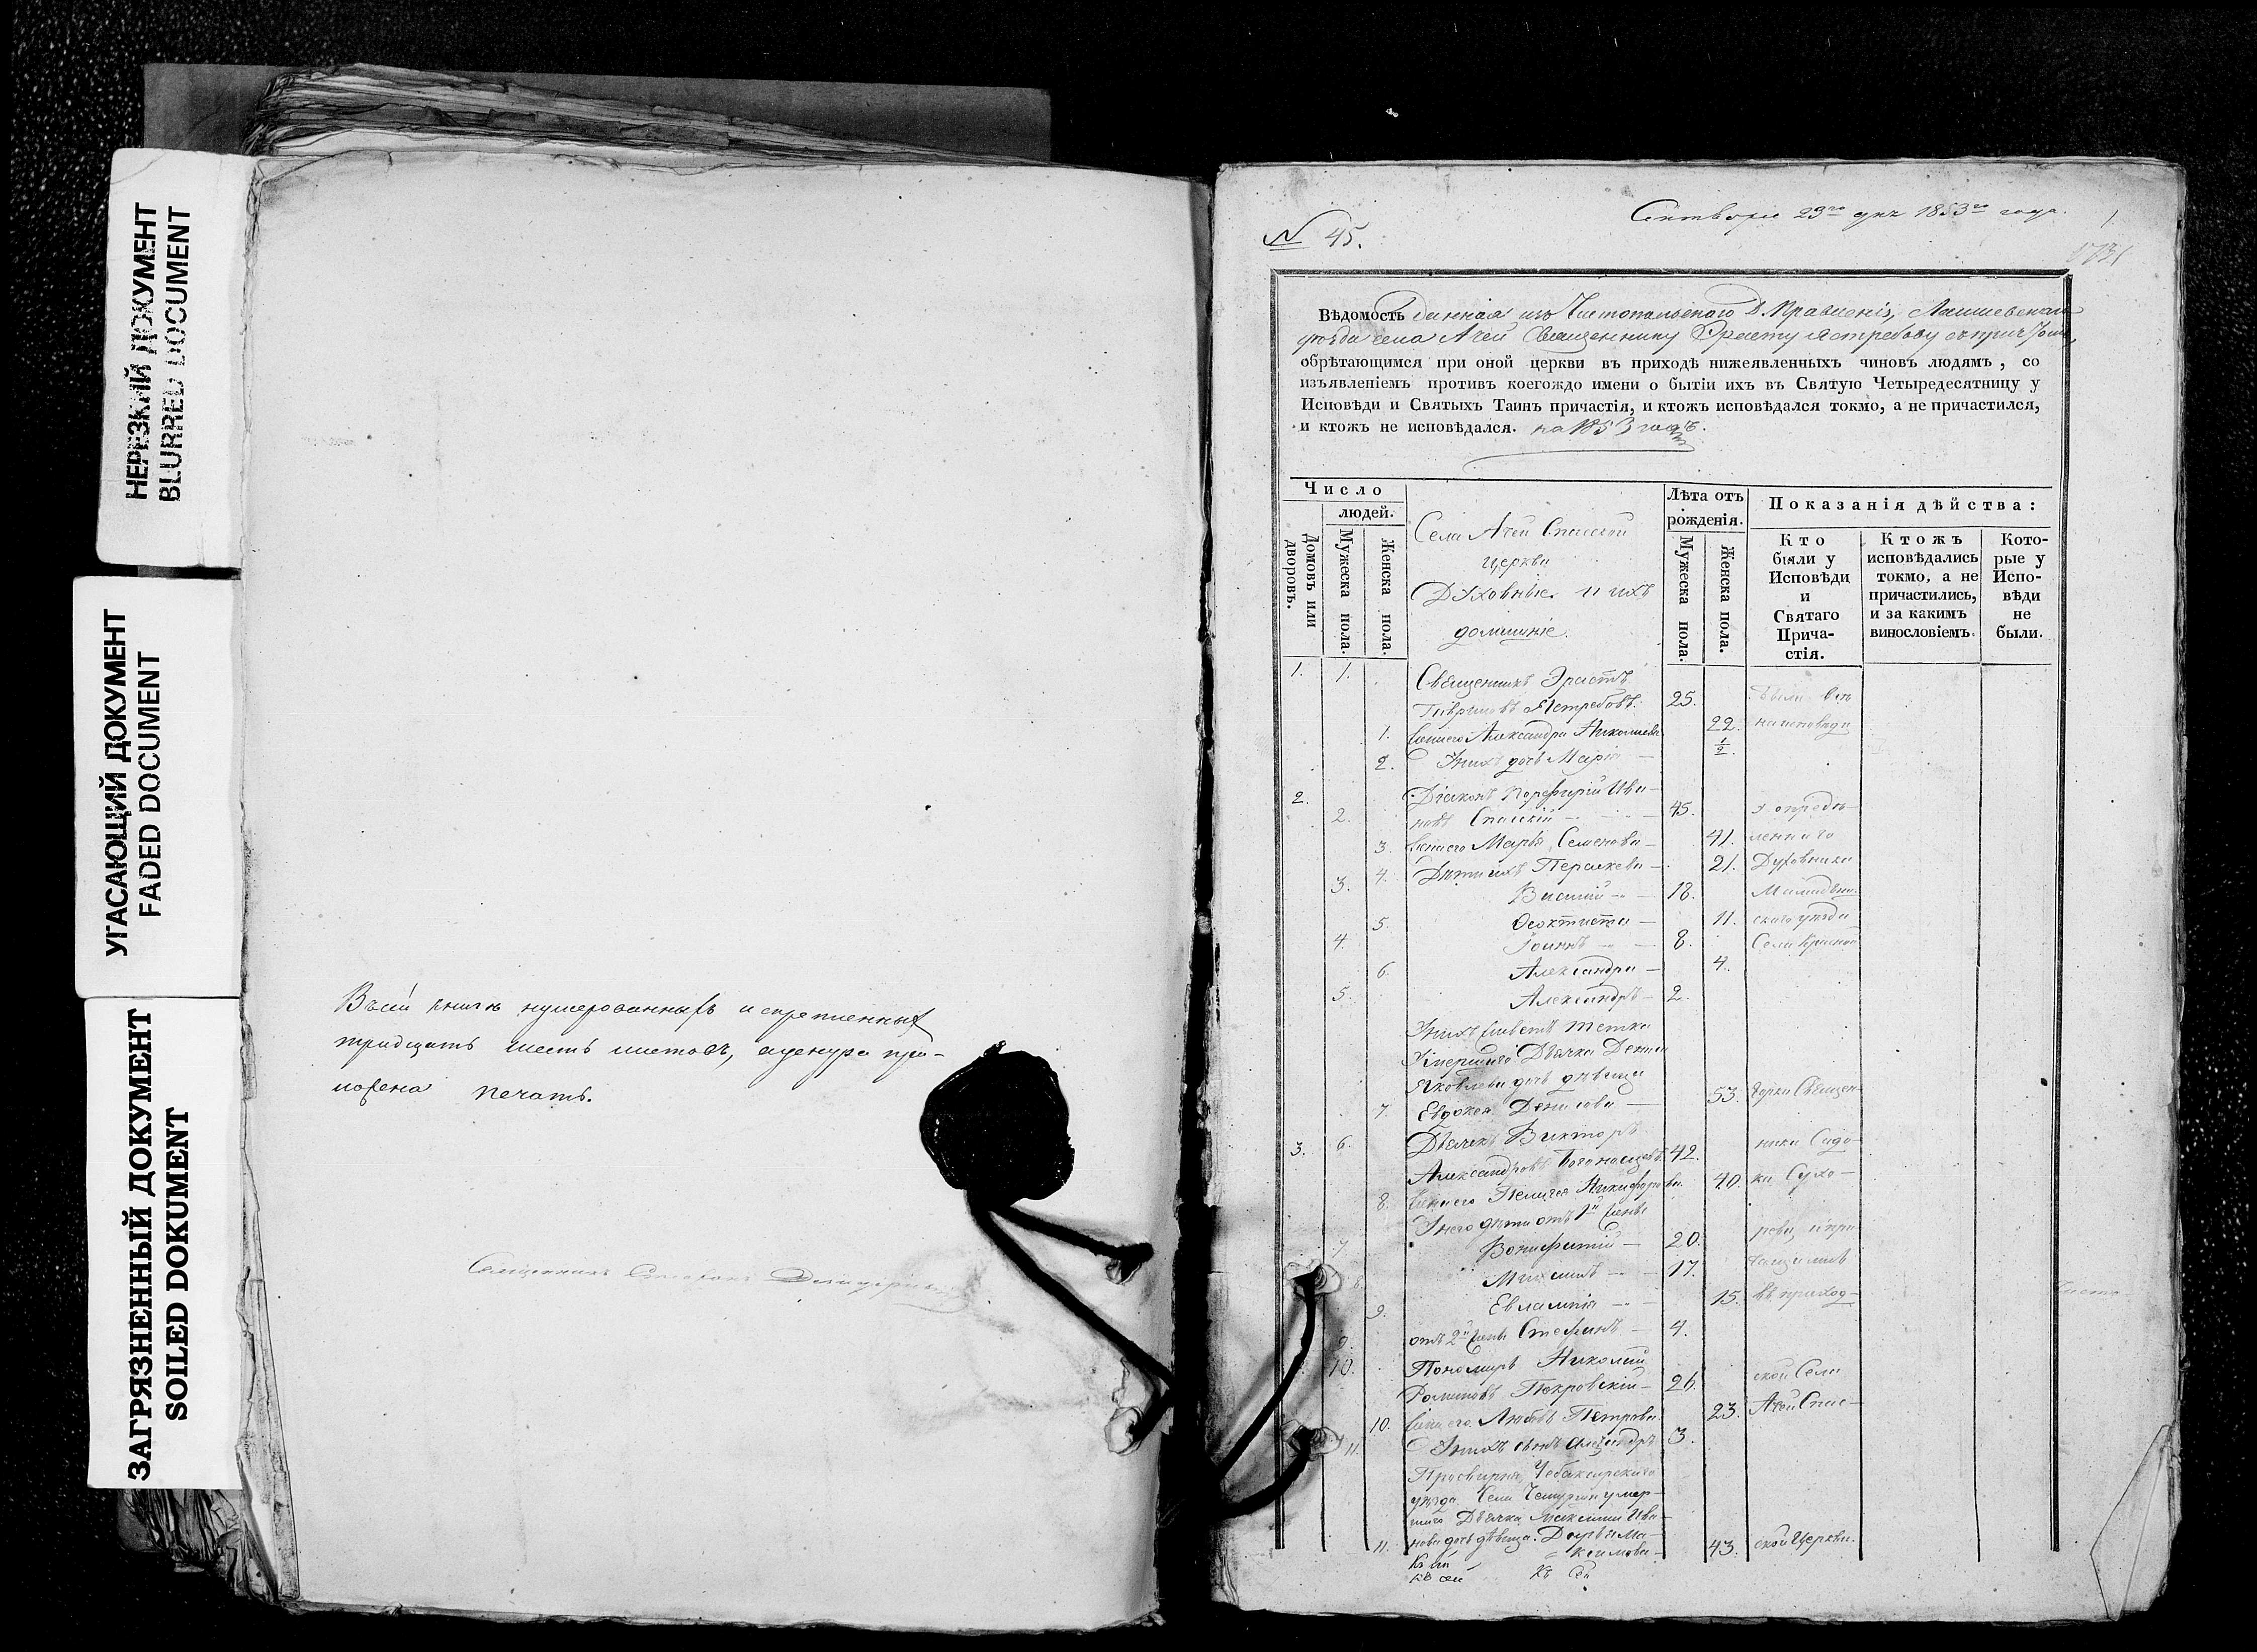 НЕРЕЗКИЙ ДОКУМЕНТ
BLURRED DOCUMENT
УГАСАЮЩИЙ ДОКУМЕНТ
FADED DOCUMENT
ЗАГРЯЗНЕННЫЙ ДОКУМЕНТ
SOILED DOKUMENT
Въ сей книге нумерованныхъ и скрепленныхъ
тридцать шесть листовъ, а шнура при-
ложена печать.
Священникъ
23го дня 1853го года.
1
N 45.
Вѣдомость данная изъ Чистопольскаго Д. Правленія, Лаишевскаго
уѣзда села Ачей Священнику Эрасту Ястребову съ причтомъ
обрѣтающимся при оной церкви въ приходѣ нижеявленныхъ чиновъ людямъ, со
изъявленіемъ противъ коегождо имени о бытіи ихъ въ Святую Четыредесятницу у
Исповѣди и Святыхъ Таинъ причастія, и ктожъ исповѣдался токмо, а не причастился,
и ктожъ не исповѣдался. на 1853 годъ.
Число
людей.
Домовъ или дворовъ.
Мужеска пола.
Женска пола.
Села Ачей Спасской
церкви
Духовные и ихъ
домашніе.
Лѣта отъ
рожденія.
Мужеска пола.
Женска пола.
Показанія дѣйства:
Кто
были у
Исповѣди
и
Святаго
Прича-
стія.
Ктожъ
исповѣдались
токмо, а не
причастились,
и за какимъ
винословіемъ.
Кото-
рые у
Испо-
вѣди
не
были.
1. 1. Священникъ Эрастъ
Гавриловъ Ястребовъ. 25.
1. Жена его Александра Николаева 22. на исповѣди
2. У нихъ дочь Марія — 1/2.
2. Діаконъ Порфирій Ива-
2. новъ Спасскій — 45. у опредѣ-
3. Жена его Марья Семенова — 41. леннаго
4. Дѣти ихъ Параскева — 21. Духовника
3. Василій — 18.
5. Феоктиста — 11. скаго уѣзда
4. Іоаннъ — 8. Села
6. Александра — 4.
5. Александръ — 2.
У нихъ живетъ тетка
Умершаго Дьячка
Яковлева дочь дѣвица
7. Евдокея Денисова — 53.
3. 6. Дьячекъ Викторъ
Александровъ Богоносцевъ 42. ника Сидо-
8. Жена его Пелагея Никифорова 40.
У него дѣти отъ 1й жены
7. Вонифатій — 20.
8. Михаилъ — 17.
9. Евлампія — 15. въ приход-
9. отъ 2й жены Стефанъ — 4.
10. Пономарь Николай
Романовъ Покровскій — 26. ской Села
10. Жена его Любовь Петрова 23. Ачей Спас-
11. У нихъ сынъ Александръ 3.
Просвирня, Чебоксарскаго
уѣзда Села умер-
шаго Дьячка Максима Ива-
11. нова дочь дѣвица Дарья Ма-
ксимова — 43. ской Церкви.